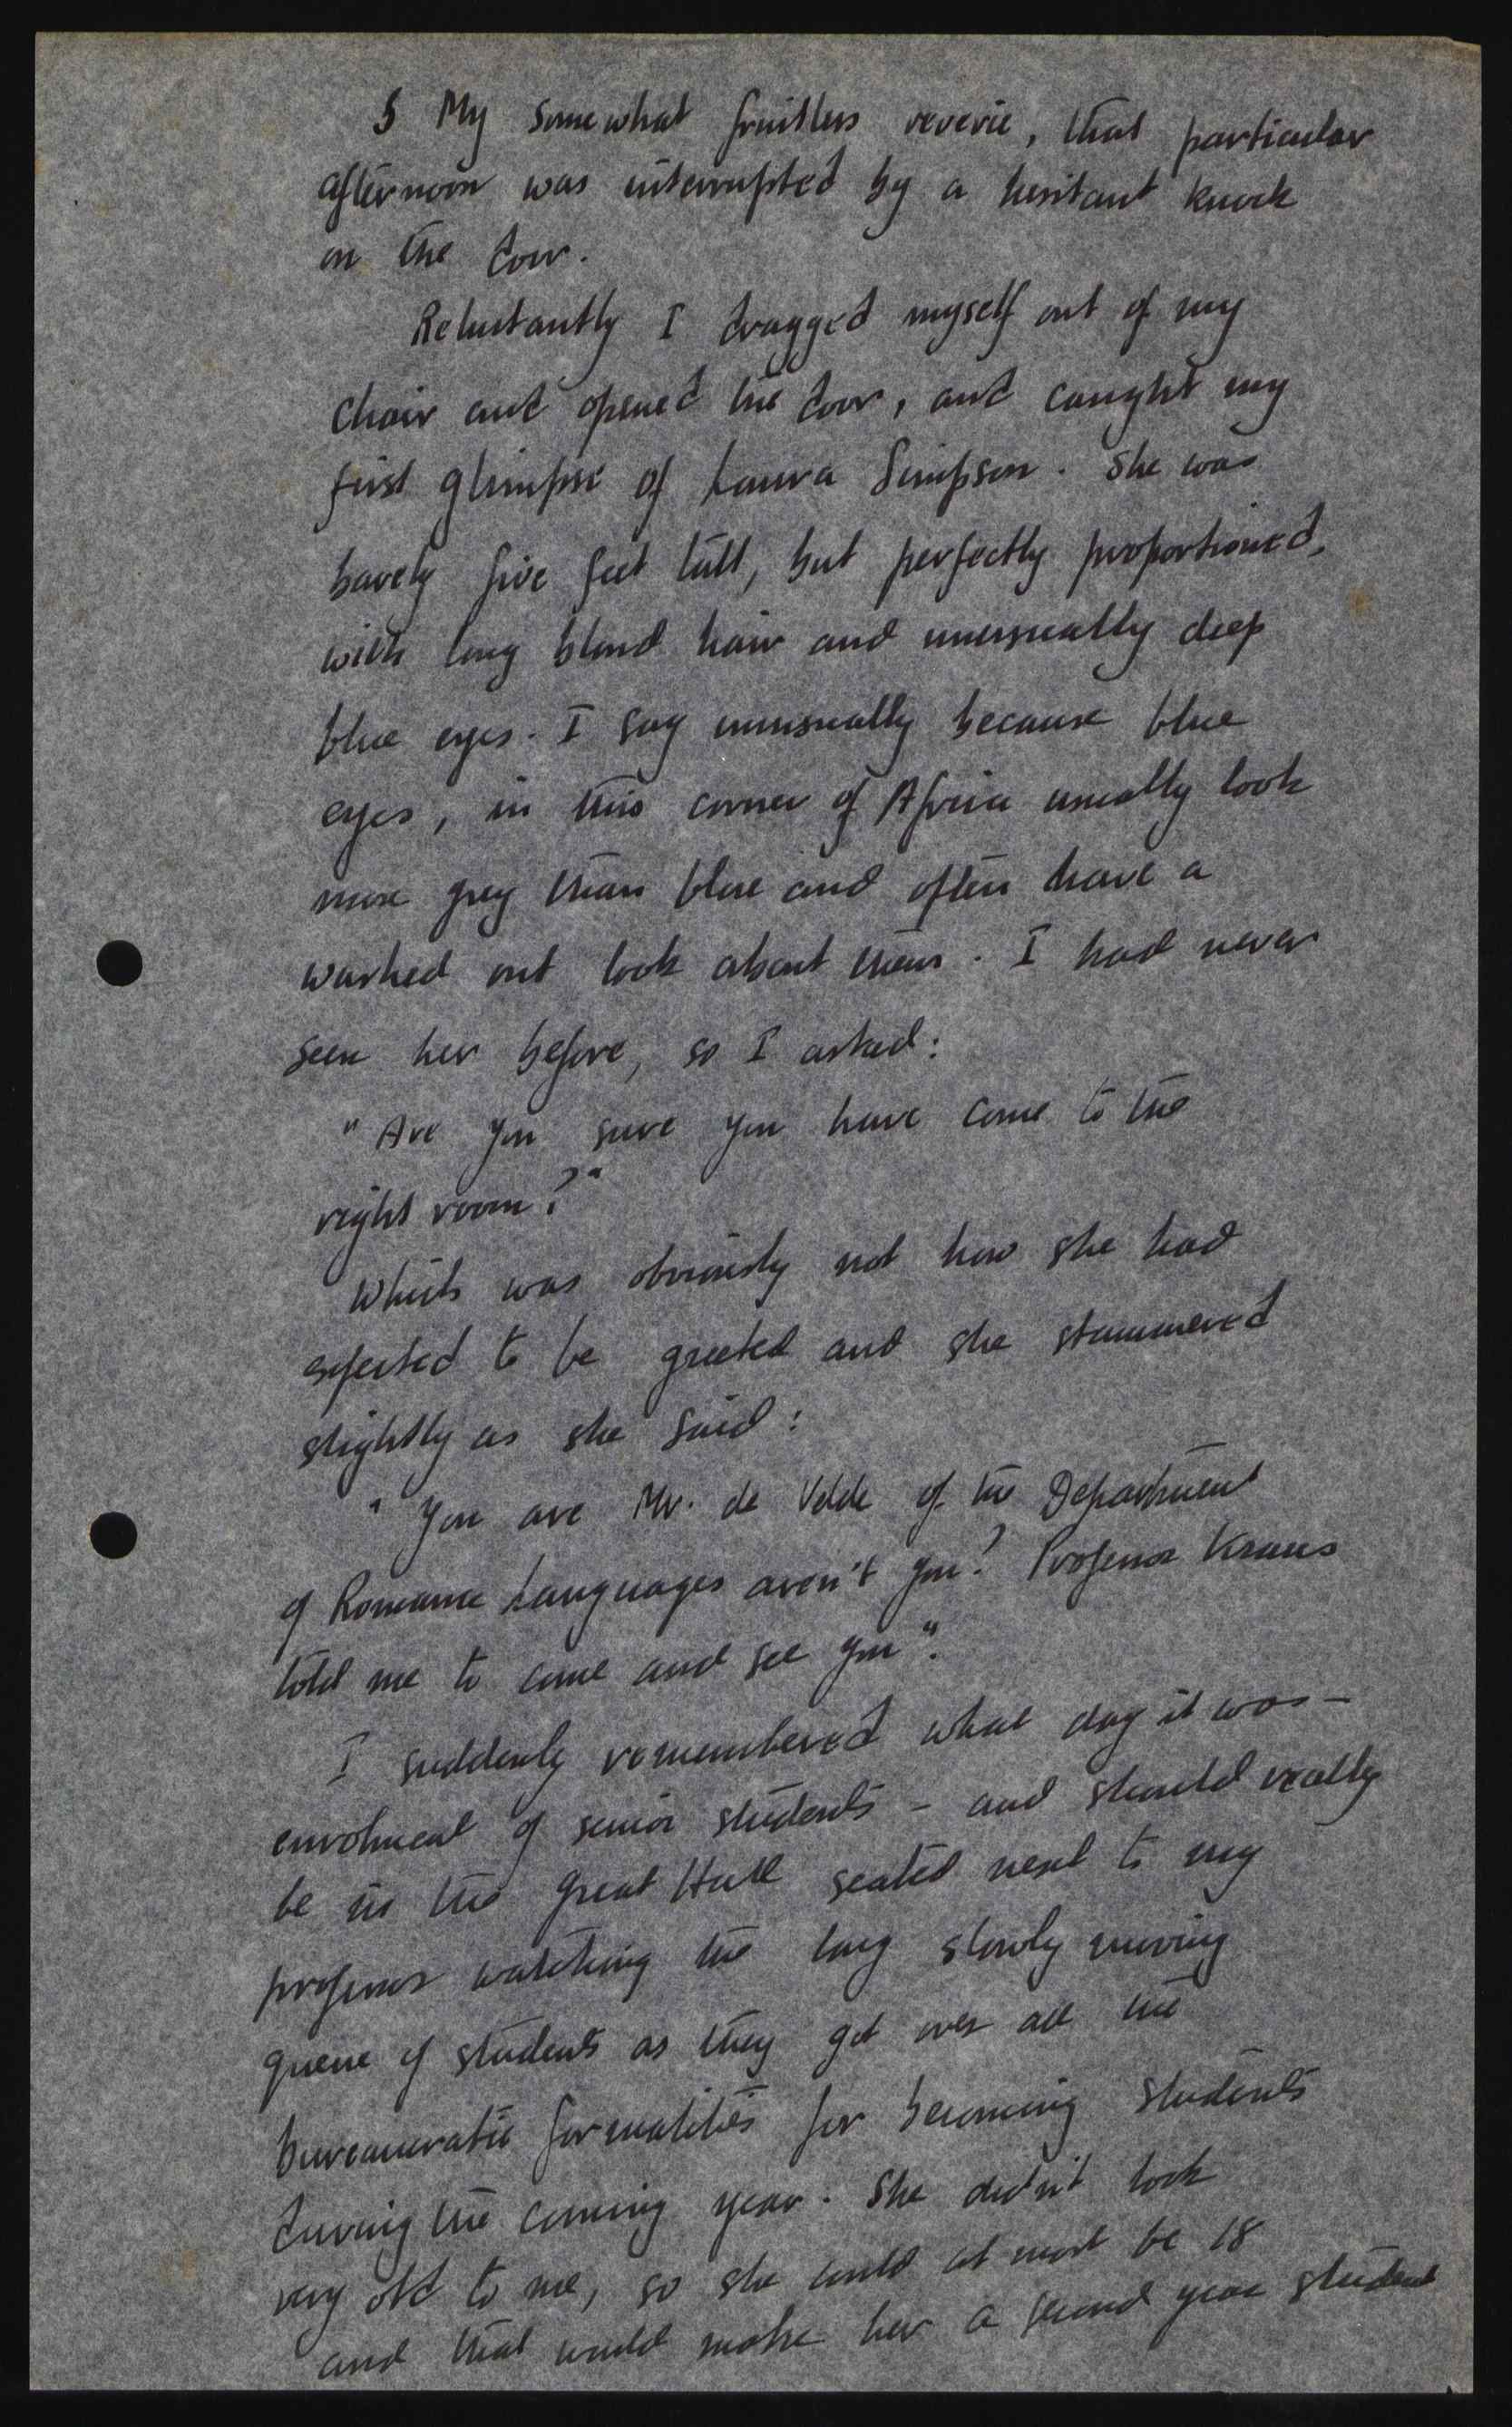 § My somewhat fruitless reverie, that particular
afternoon was interrupted by a hesitant knock
on the door.
Reluctantly I dragged myself out of my
chair and opened the door, and caught my
first glimpse of Laura Simpson. She was
barely five feet tall, but perfectly proportioned,
with long blond hair and unusually deep
blue eyes. I say unusually because blue
eyes, in this corner of Africa usually look
more grey than blue and often have a
washed out look about them. I had never
seen her before, so I asked:
"Are you sure you have come to the
right room?"
Which was obviously not how she had
expected to be greeted and she stammered
slightly as she said:
"You are Mr. de Velde of the Department
of Romance Languages aren't you? Professor Kraus
told me to come and see you".
I suddenly remembered what day it was -
enrolment of senior students - and should really
be in the Great Hall seated next to my
professor watching the long slowly moving
queue of students as they got over all the
bureaucratic formalities for becoming students
during the coming year. She didn't look
very old to me, so she could at most be 18
and that would make her a second year student